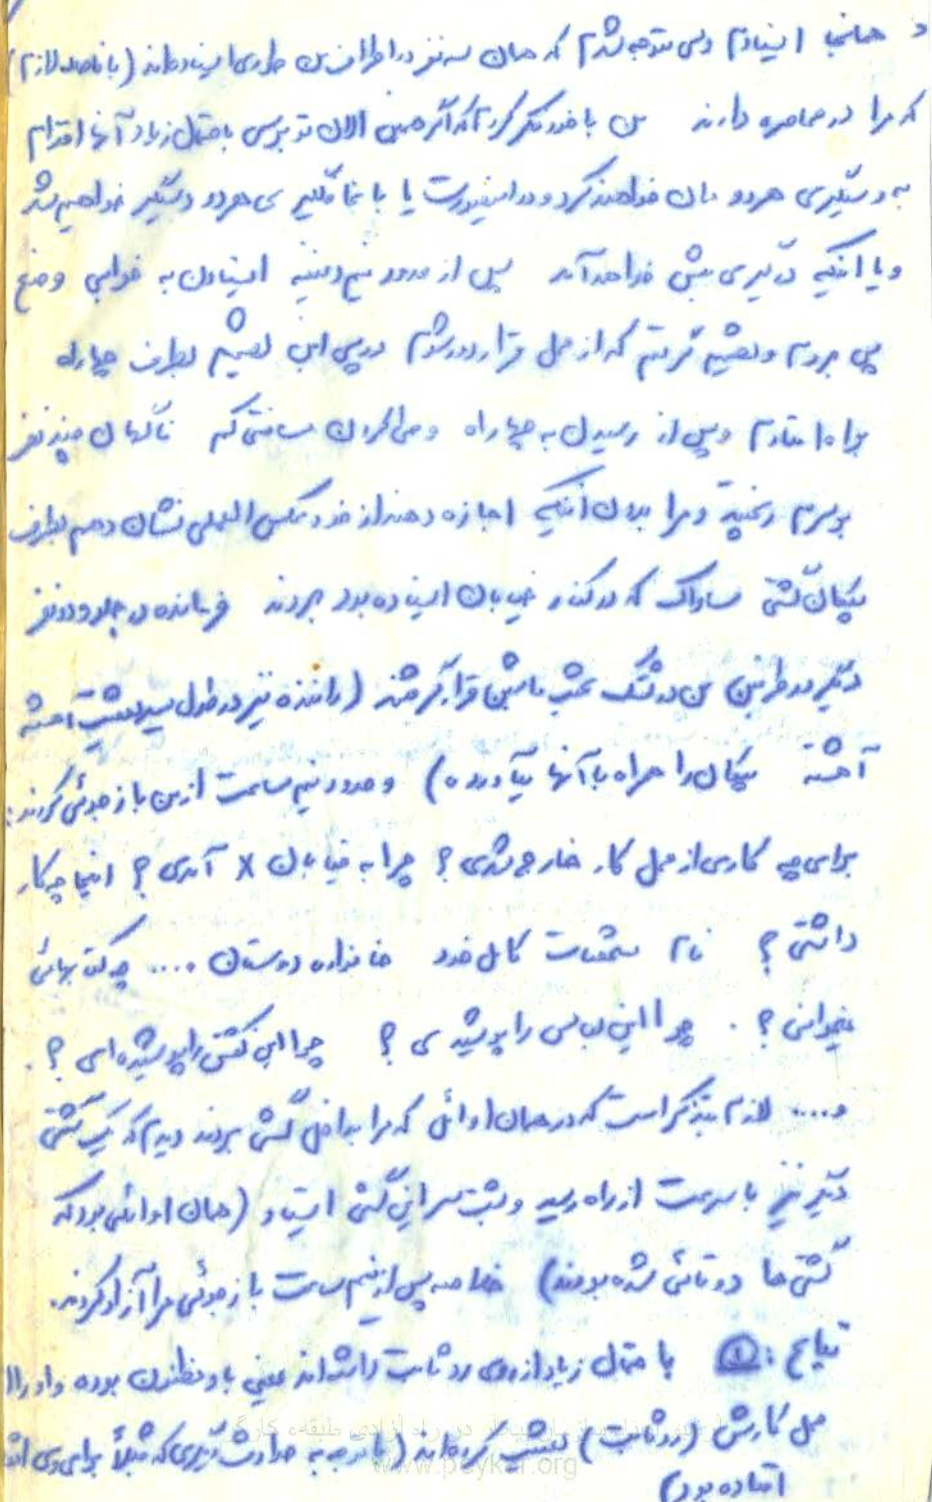 د همانجا ایستادم ولی متوجه شدم که همان سه نفر در اطراف من طوری ایستاده‌اند (با فاصله لازم)
که مرا در محاصره دارند من با خود فکر کردم که اگر همین الان تو برسی باحتمال زیاد آنها اقدام
به دستگیری هر دو مان خواهند کرد و در اینصورت یا با هم دستگیر خواهیم شد
و یا اینکه درگیری پیش خواهد آمد پس از حدود نیم دقیقه ایستادن به خرابی وضع
پی بردم و تصمیم گرفتم که از محل قرار دور شوم در پی این تصمیم بطرف چهار راه
براه افتادم و پس از رسیدن به چهار راه و طی کردن مسافتی کم ناگهان چند نفر
بر سرم ریختند و مرا بدون اینکه اجازه دهند از خود عکس العملی نشان دهم بطرف
پیکان گشتی ساواک که در کنار خیابان ایستاده بود بردند فرمانده در جلو و دو نفر
دیگر در طرفین من در تشک عقب ماشین قرار گرفتند (راننده نیز در طول مسیر آهسته
آهسته پیکان را همراه با آنها میآورده) و حدود نیم ساعت از من بازجوئی کردند:
برای چه کاری از محل کار خارج شدی؟ چرا به خیابان x آمدی؟ اینجا چکار
داشتی؟ نام مشخصات کامل خود خانواده دوستان .... چه کتابهائی
میخوانی؟. چرا این لباس را پوشیدی؟ چرا این کفش را پوشیده‌ای؟.
و.... لازم بتذکر است که در همان اوائل که مرا بداخل گشتی بردند دیدم که یک گشتی
دیگر نیز با سرعت از راه رسید و پشت سر این گشتی ایستاد (همان اوائلی بود که
گشتی ها دوتائی شده بودند) خلاصه پس از نیم ساعت بازجوئی مرا آزاد کردند.
نتایج: ① باحتمال زیاد از روی رد ثابت داشته‌اند یعنی باو مظنون بوده و او را از
محل کارش (رد ثابت) تعقیب کرده‌اند (با توجه به حوادث دیگری که قبلاً برای وی اتفا
افتاده بود)
www.peykar.org